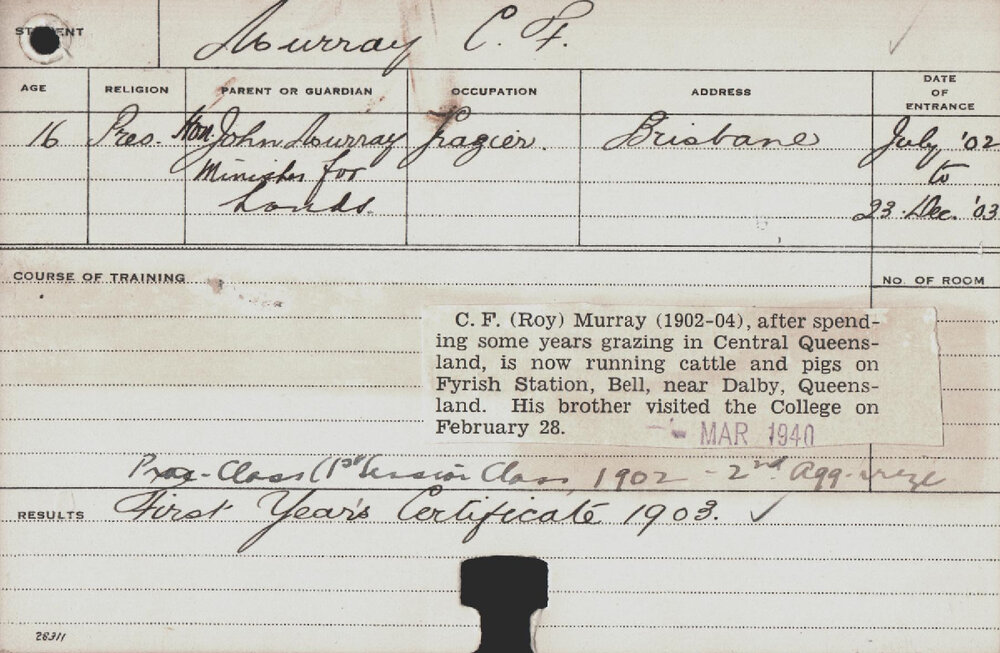 STUDENT Murray C. F.
AGE RELIGION PARENT OR GUARDIAN OCCUPATION ADDRESS DATE OF ENTRANCE
16 Pres. Hon. John Murray Grazier. Brisbane July '02
Minister for to
Lands. 23 Dec. '03
COURSE OF TRAINING
NO. OF ROOM
C. F. (Roy) Murray (1902-04), after spend-
ing some years grazing in Central Queens-
land, is now running cattle and pigs on
Fyrish Station, Bell, near Dalby, Queens-
land. His brother visited the College on
February 28.
MAR 1940
Class (1st Session Class, 1902 - 2nd Agg. prize
RESULTS First Year's Certificate 1903. ✓
28311